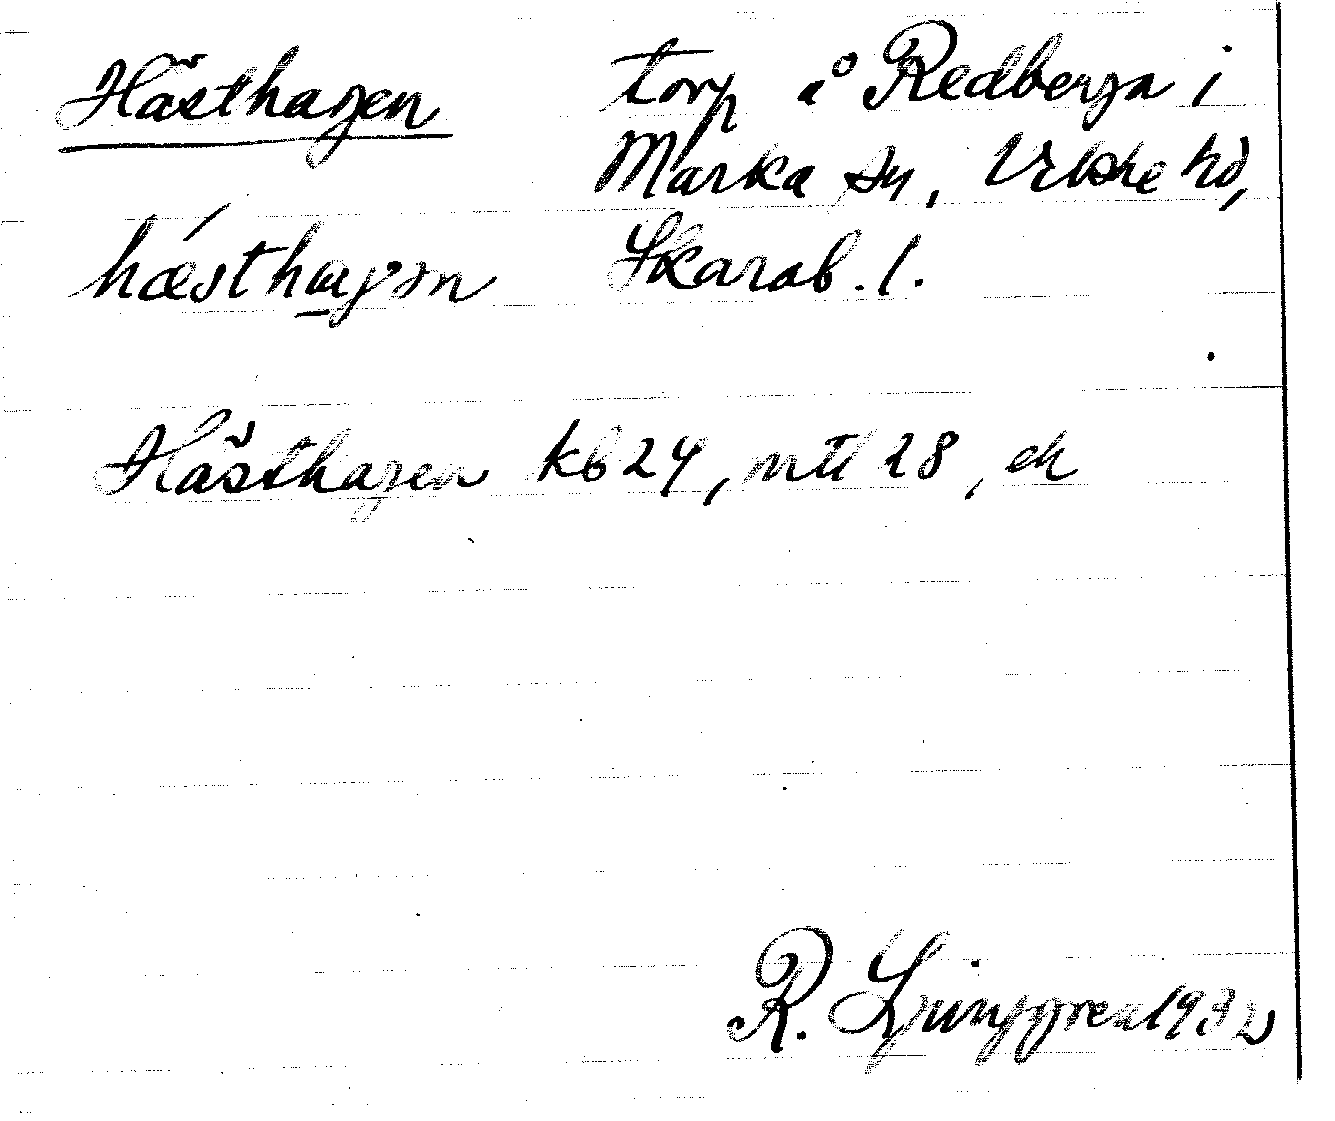 Hästhagen torp å Redberga i
Marka sn, Vilske hd,
hæsthagən Skarab. l.
Hästhagen kb 24, mtl 28, ek
R. Ljunggren 1932